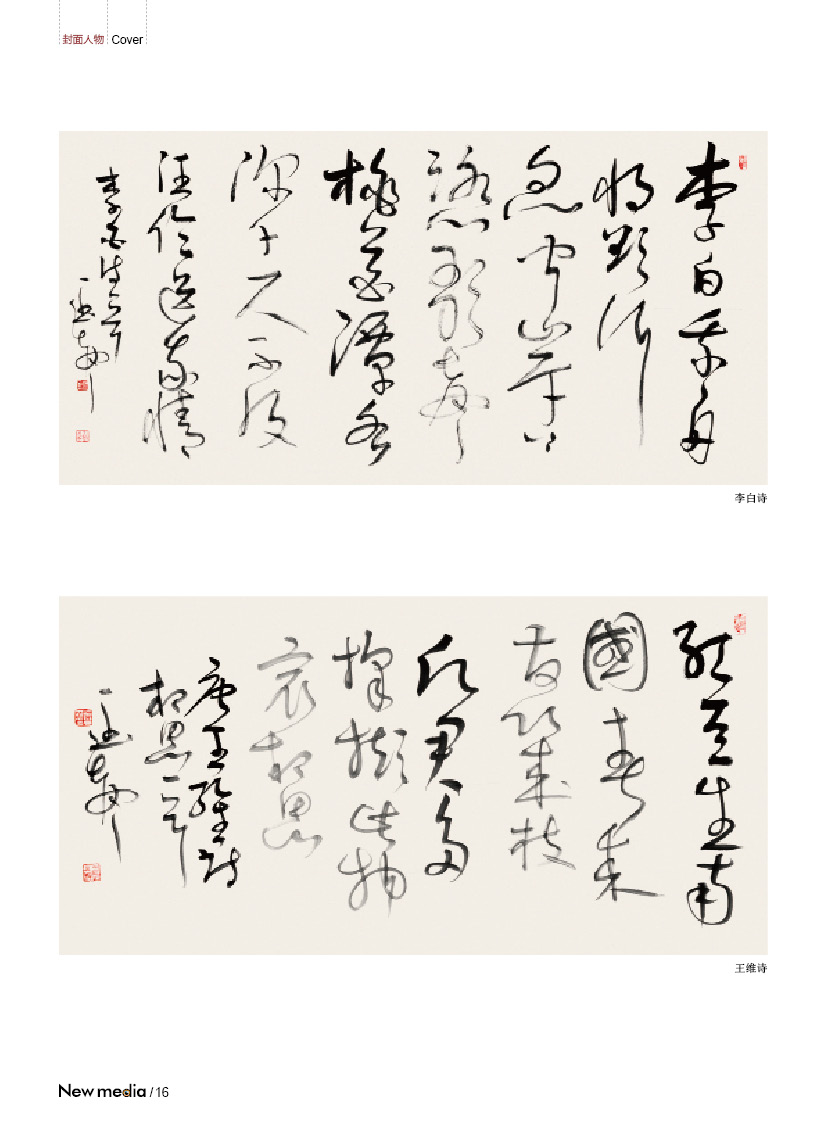 封面人物 Cover
李白乘舟
将欲行
忽闻岸上
踏歌声
桃花潭水
深千尺不及
汪伦送我情
李白诗一首
李白诗
红豆生南
國春来
发几枝
愿君多
采撷此物
最相思
唐王维诗
相思一首
王维诗
New media / 16